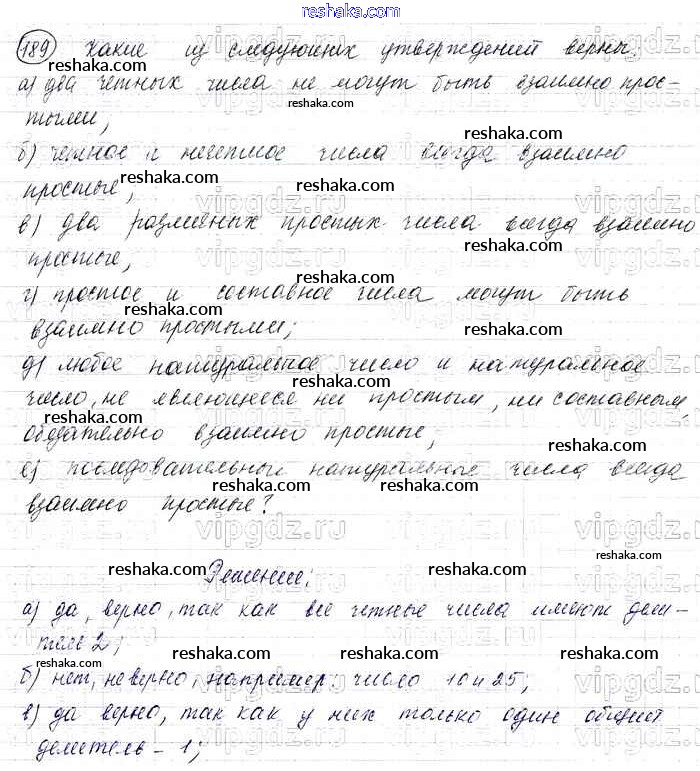 reshaka.com
189 Какие из следующих утверждений верны:
reshaka.com
а) два четных числа не могут быть взаимно прос-
reshaka.com
тыми;
reshaka.com
б) четное и нечетное числа всегда взаимно
reshaka.com
простые;
в) два различных простых числа всегда взаимно
reshaka.com
простые;
reshaka.com
г) простое и составное числа могут быть
взаимно простыми;
reshaka.com
д) любое натуральное число и натуральное
reshaka.com
число, не являющееся ни простым, ни составным,
reshaka.com
обязательно взаимно простые;
reshaka.com
е) последовательный натуральные числа всегда
reshaka.com
взаимно простые?
reshaka.com
Решение:
reshaka.com
а) да, верно, так как все четные числа имеют дели-
тель 2;
reshaka.com reshaka.com reshaka.com
б) нет, неверно, например: число 10 и 25;
reshaka.com
в) да верно, так как у них только один общий
reshaka.com
делитель - 1;
vipgdz.ru